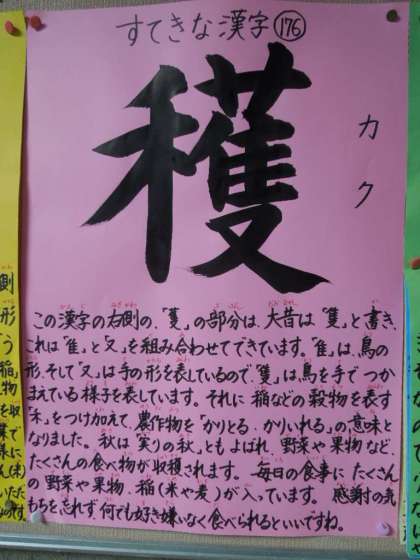 すてきな漢字 176
穫
カク
この漢字の右側の、「蒦」の部分は、大昔は「隻」と書き、
これは「隹」と「又」を組み合わせてできています。「隹」は、鳥の
形、そして「又」は手の形を表しているので、「隻」は、鳥を手でつか
まえている様子を表しています。それに稲などの穀物を表す
「禾」をつけ加えて、農作物を「かりとる・かりいれる」の意味と
なりました。秋は「実りの秋」ともよばれ、野菜や果物など、
たくさんの食べ物が収穫されます。毎日の食事にたくさん
の野菜や果物、稲(米や麦)が入っています。感謝の気
もちを忘れず何でも好き嫌いなく食べられるといいですね。